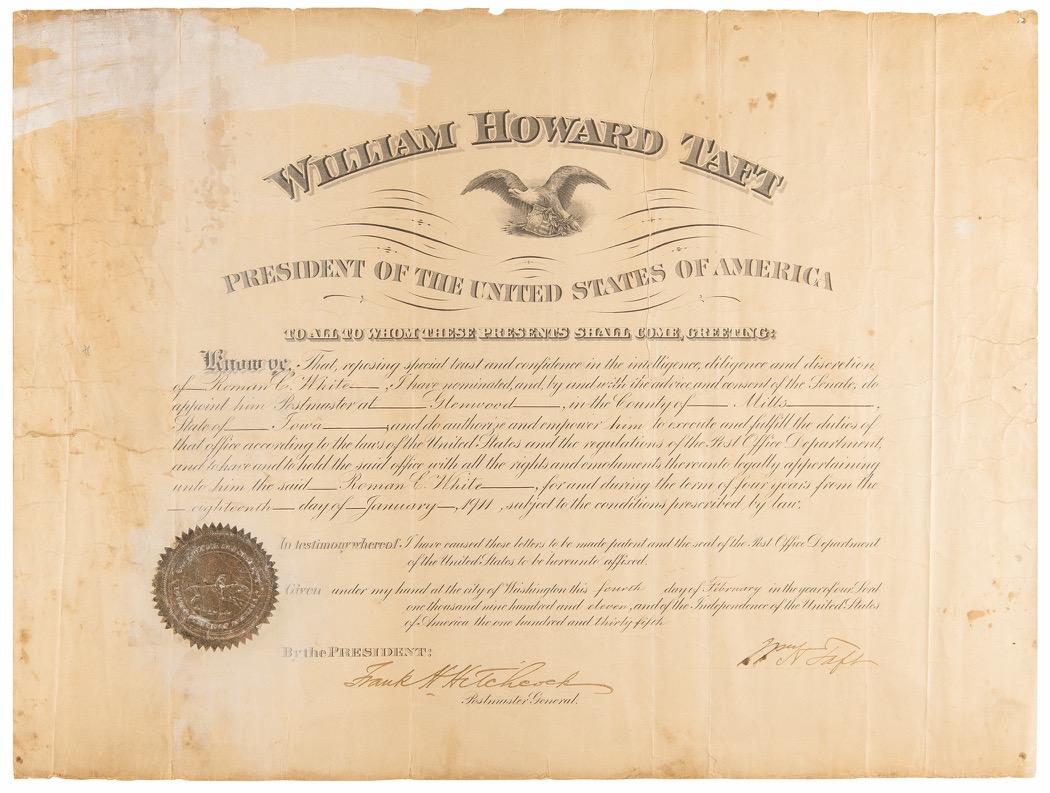 WILLIAM HOWARD TAFT
PRESIDENT OF THE UNITED STATES OF AMERICA
TO ALL TO WHOM THESE PRESENTS SHALL COME, GREETING:
Know ye, That, reposing special trust and confidence in the intelligence, diligence and discretion
of Roman C. White, I have nominated, and, by and with the advice and consent of the Senate, do
appoint him Postmaster at Glenwood, in the County of Mills,
State of Iowa, and do authorize and empower him to execute and fulfill the duties of
that office according to the laws of the United States and the regulations of the Post Office Department,
and to have and to hold the said office with all the rights and emoluments thereunto legally appertaining
unto him the said Roman C. White, for and during the term of four years from the
eighteenth day of January, 1911, subject to the conditions prescribed by law.
In testimony whereof I have caused these letters to be made patent and the seal of the Post Office Department
of the United States to be hereunto affixed.
Given under my hand at the city of Washington this fourth day of February in the year of our Lord
one thousand nine hundred and eleven, and of the Independence of the United States
of America the one hundred and thirty-fifth
By the PRESIDENT:
Wm H Taft
Frank H Hitchcock
Postmaster General.